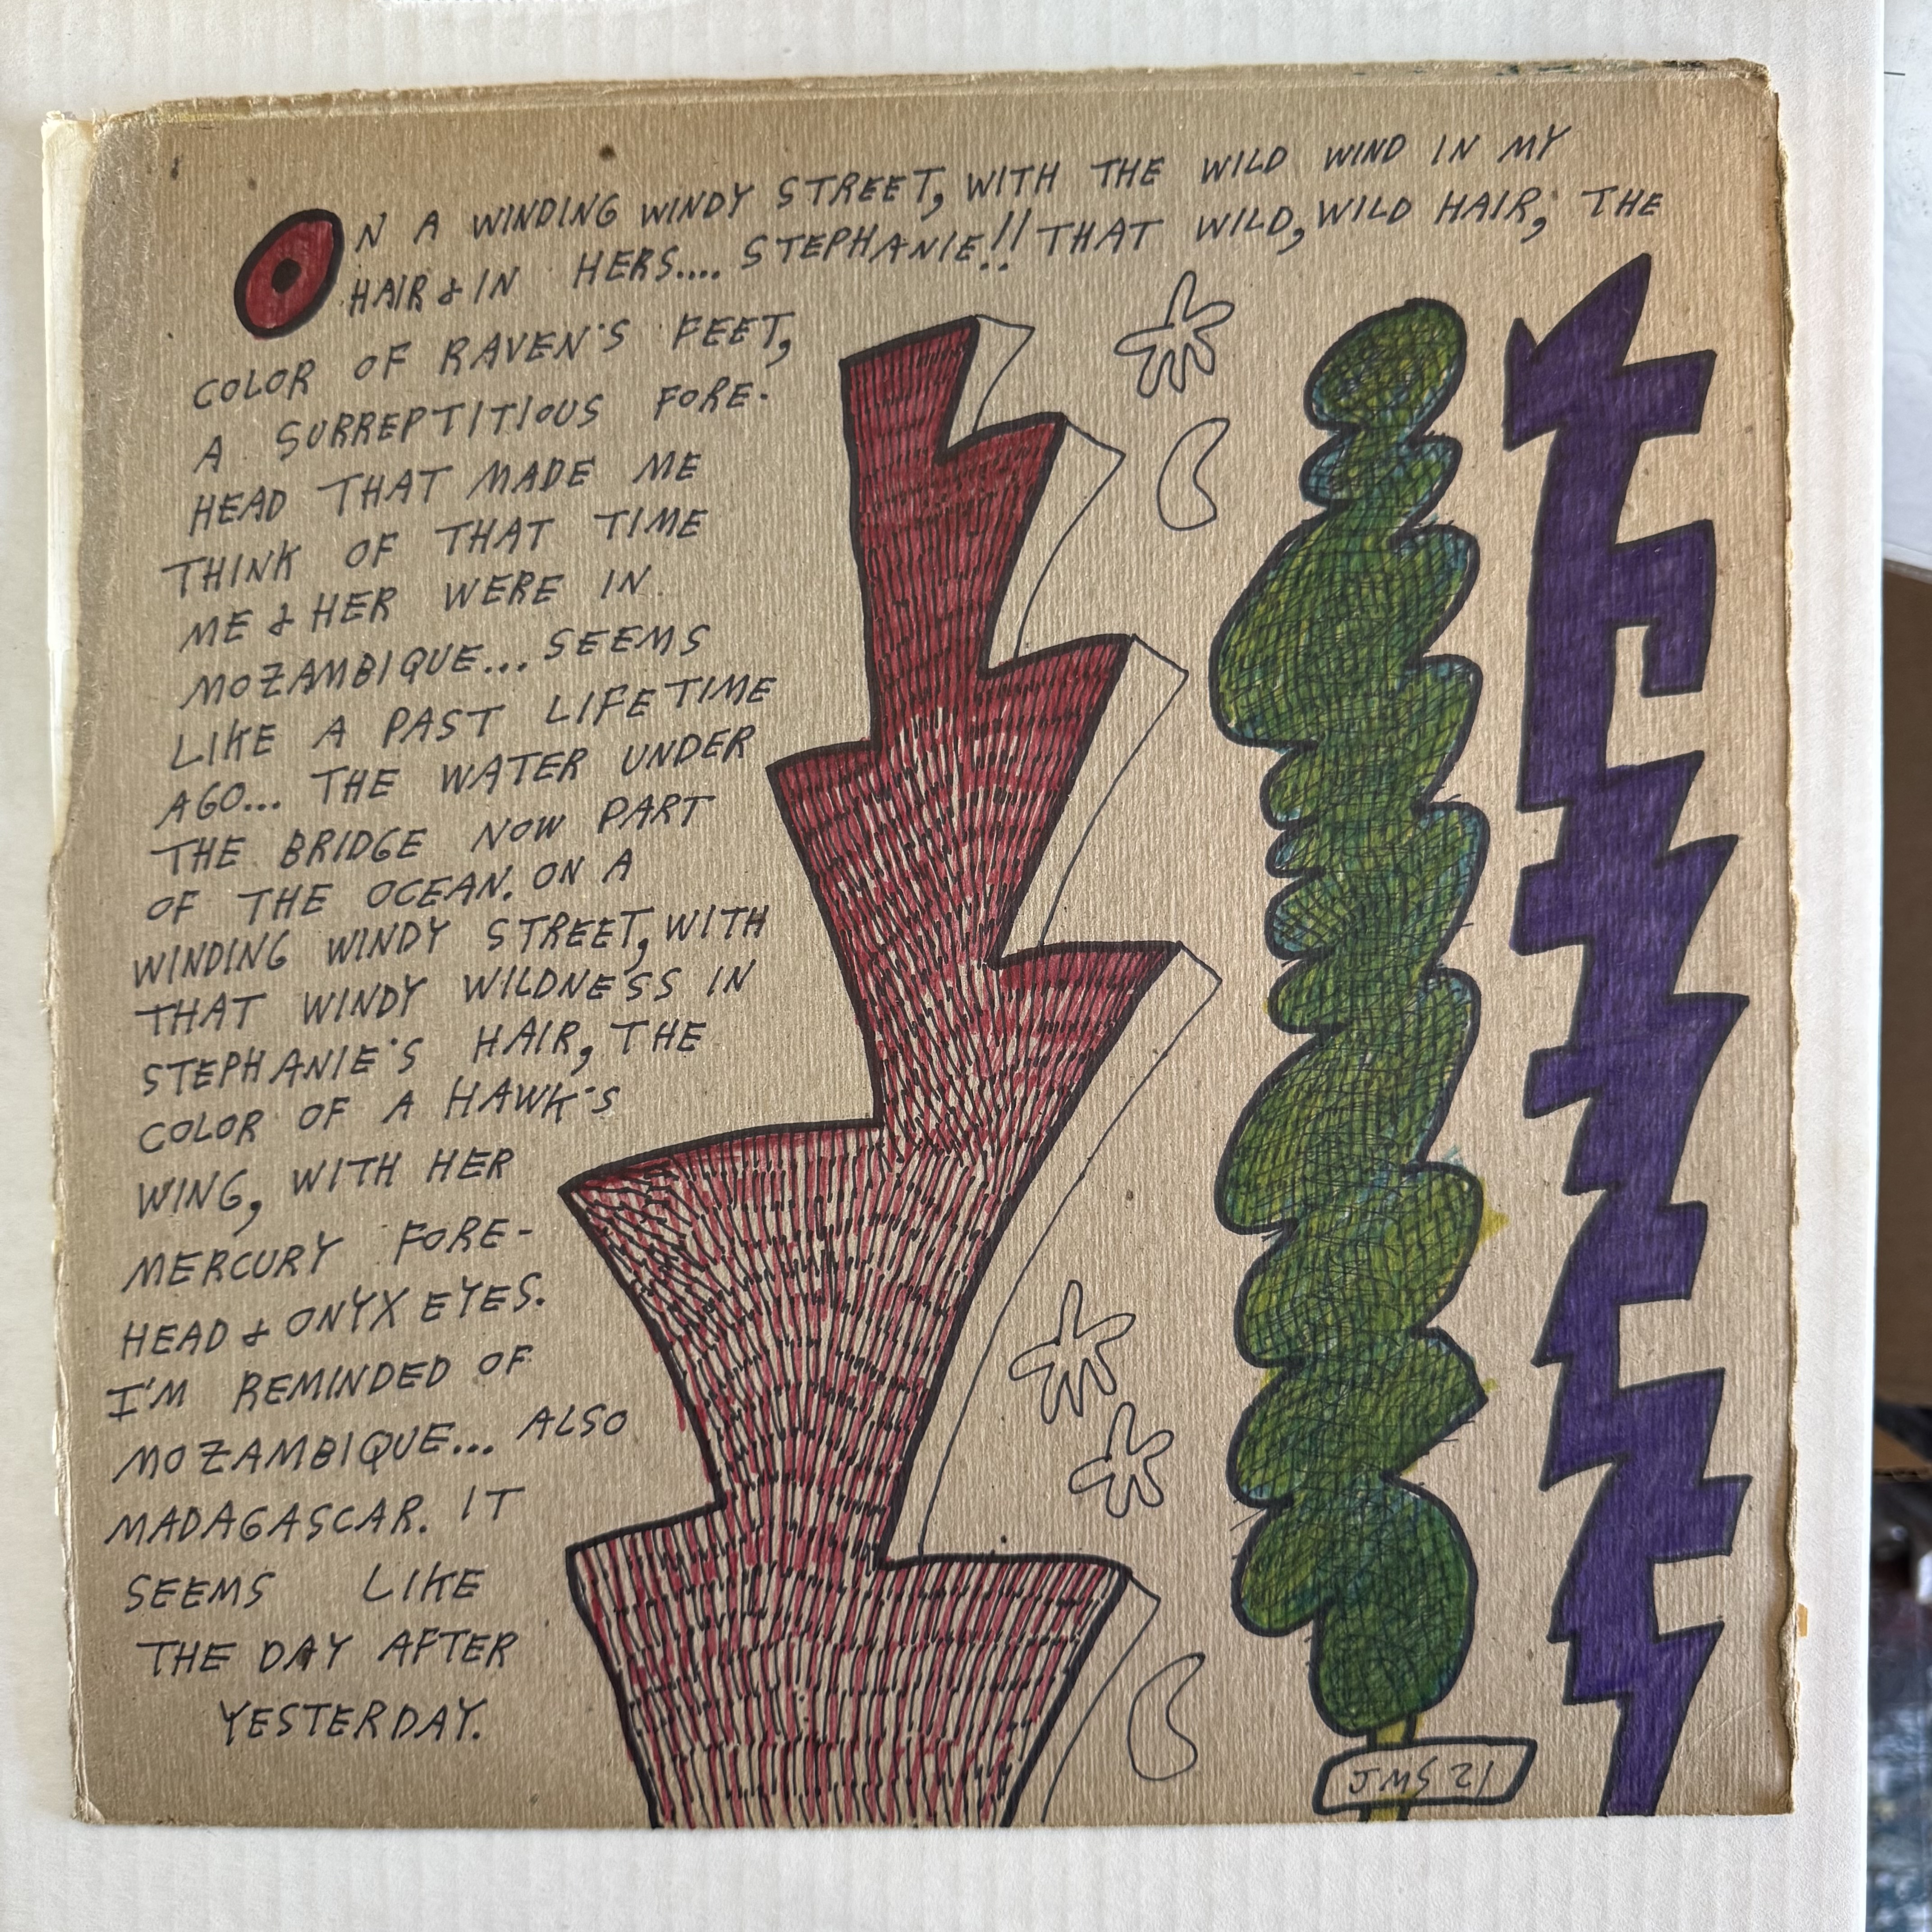 ON A WINDING WINDY STREET, WITH THE WILD WIND IN MY
HAIR & IN HERS.... STEPHANIE!! THAT WILD, WILD HAIR, THE
COLOR OF RAVEN'S FEET,
A SURREPTITIOUS FORE-
HEAD THAT MADE ME
THINK OF THAT TIME
ME & HER WERE IN
MOZAMBIQUE... SEEMS
LIKE A PAST LIFETIME
AGO... THE WATER UNDER
THE BRIDGE NOW PART
OF THE OCEAN. ON A
WINDING WINDY STREET, WITH
THAT WINDY WILDNESS IN
STEPHANIE'S HAIR, THE
COLOR OF A HAWK'S
WING, WITH HER
MERCURY FORE-
HEAD & ONYX EYES.
I'M REMINDED OF
MOZAMBIQUE... ALSO
MADAGASCAR. IT
SEEMS LIKE
THE DAY AFTER
YESTERDAY.
JMS 21